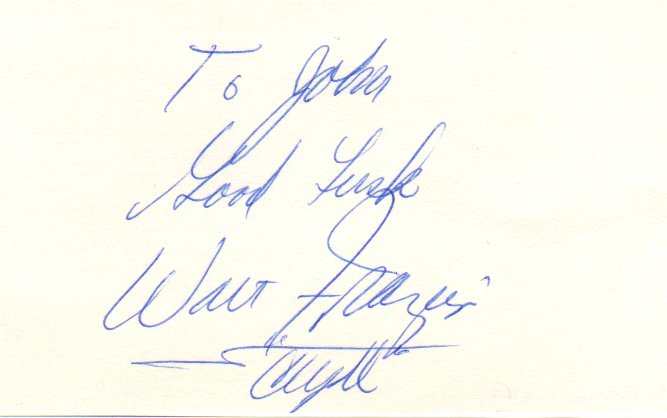 To John
Good Luck
Walt Frazier
"Clyde"